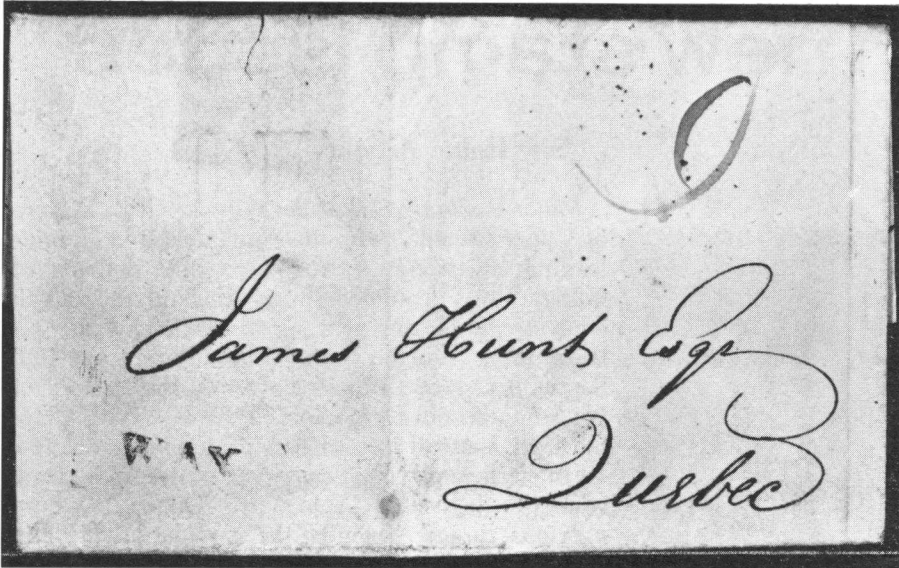 9
James Hunt Esqr
WAY
Quebec